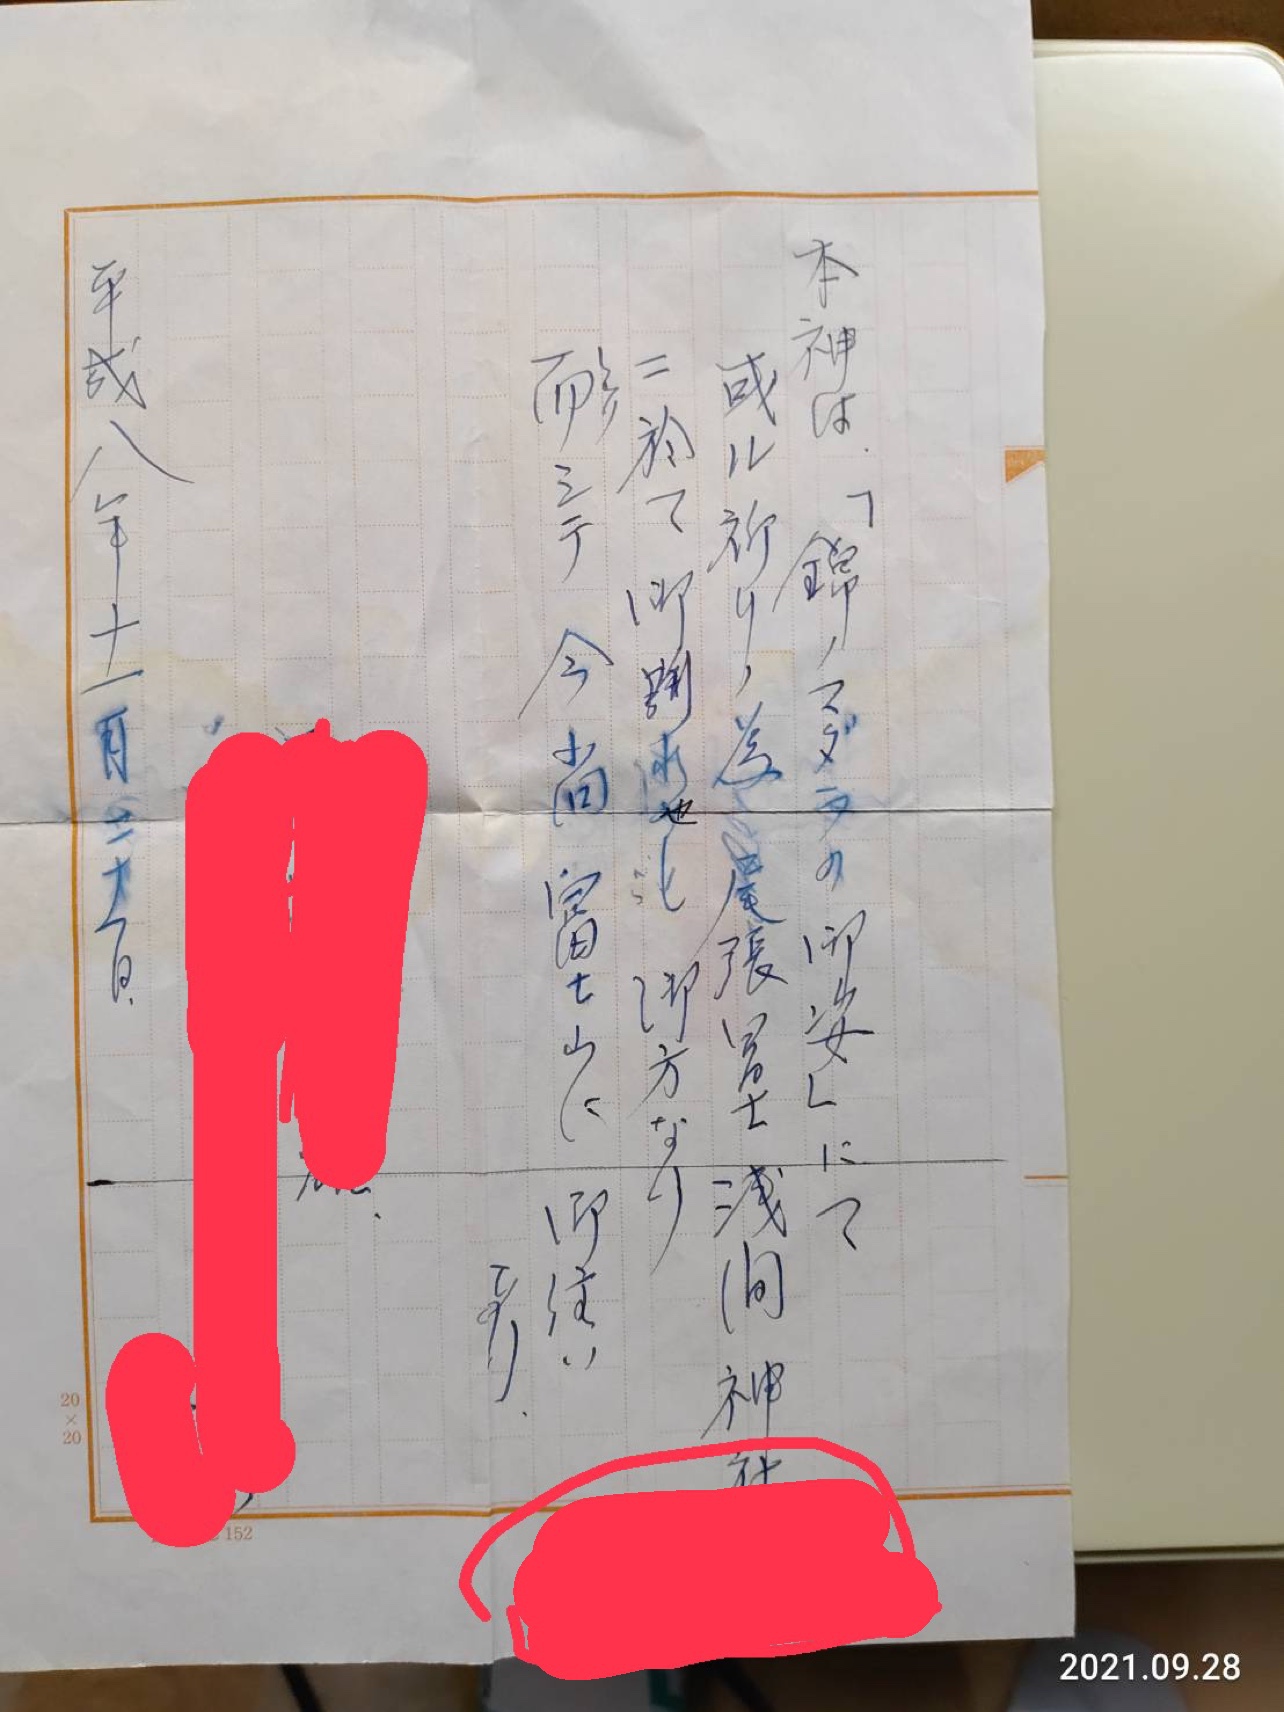 本神は、「錦ノマダラの御姿」にて
或ル祈リノ為 尾張冨士 浅間 神社
ニ於て 御 御方なり
而シテ 今 尚 富士山に 御住い
平成八年十一月 日
20
×
20
152
2021.09.28